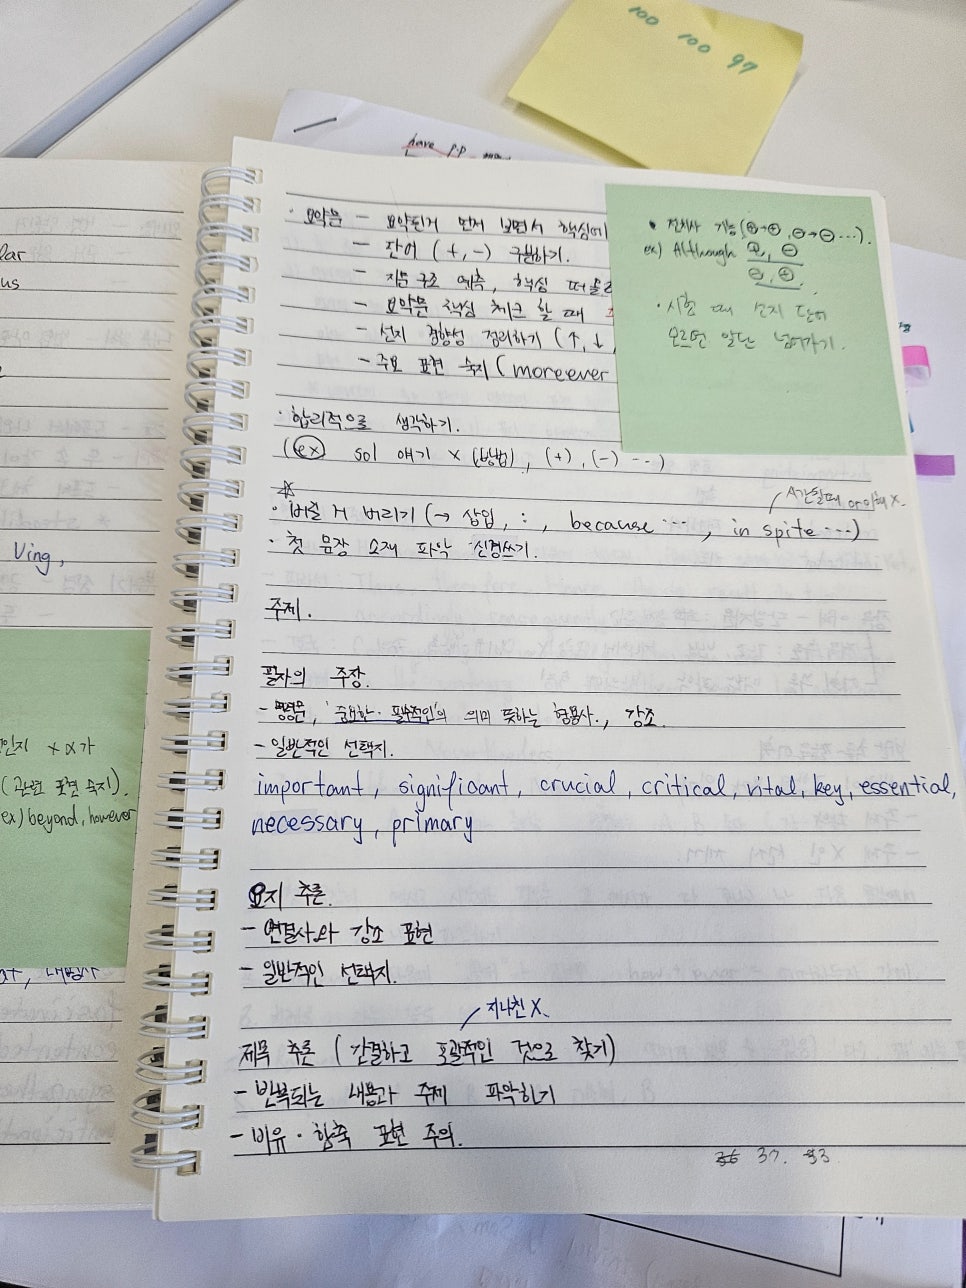 100 100 97
have p.p
· 요약문 - 요약된거 먼저 보면서 핵심어
- 단어 (+, -) 구분하기.
- 지문 구조 예측, 핵심 떠올리
- 요약문 핵심 체크 할 때
- 선지 경향성 정리하기 (↑, ↓,
- 주요 표현 숙지 (moreever
• 전치사 기능 (⊕→⊕, ⊖→⊖ ...).
ex) Although ⊕, ⊖
⊖, ⊕
· 시험 때 선지 단어
모르면 일단 넘어가기.
· 합리적으로 생각하기.
(ex) sol 얘기 x (방법), (+), (-) ...)
A간단때 or 이해 X.
· 버릴 거 버리기 (→ 삽입, : , because ..., in spite ...)
· 첫 문장 소재 파악 신경쓰기.
주제.
필자의 주장.
- 명령문, '중요한·필수적인'의 의미 뜻하는 형용사., 강조.
- 일반적인 선택지.
important, significant, crucial, critical, vital, key, essential,
necessary, primary
요지 추론.
- 연결사와 강조 표현
- 일반적인 선택지.
지나친 X.
제목 추론 (간결하고 포괄적인 것으로 찾기)
- 반복되는 내용과 주제 파악하기
- 비유·함축 표현 주의.
36 37. 93
lar
us
Ving,
인지 + α가
(관련 표현 숙지).
ex) beyond, however